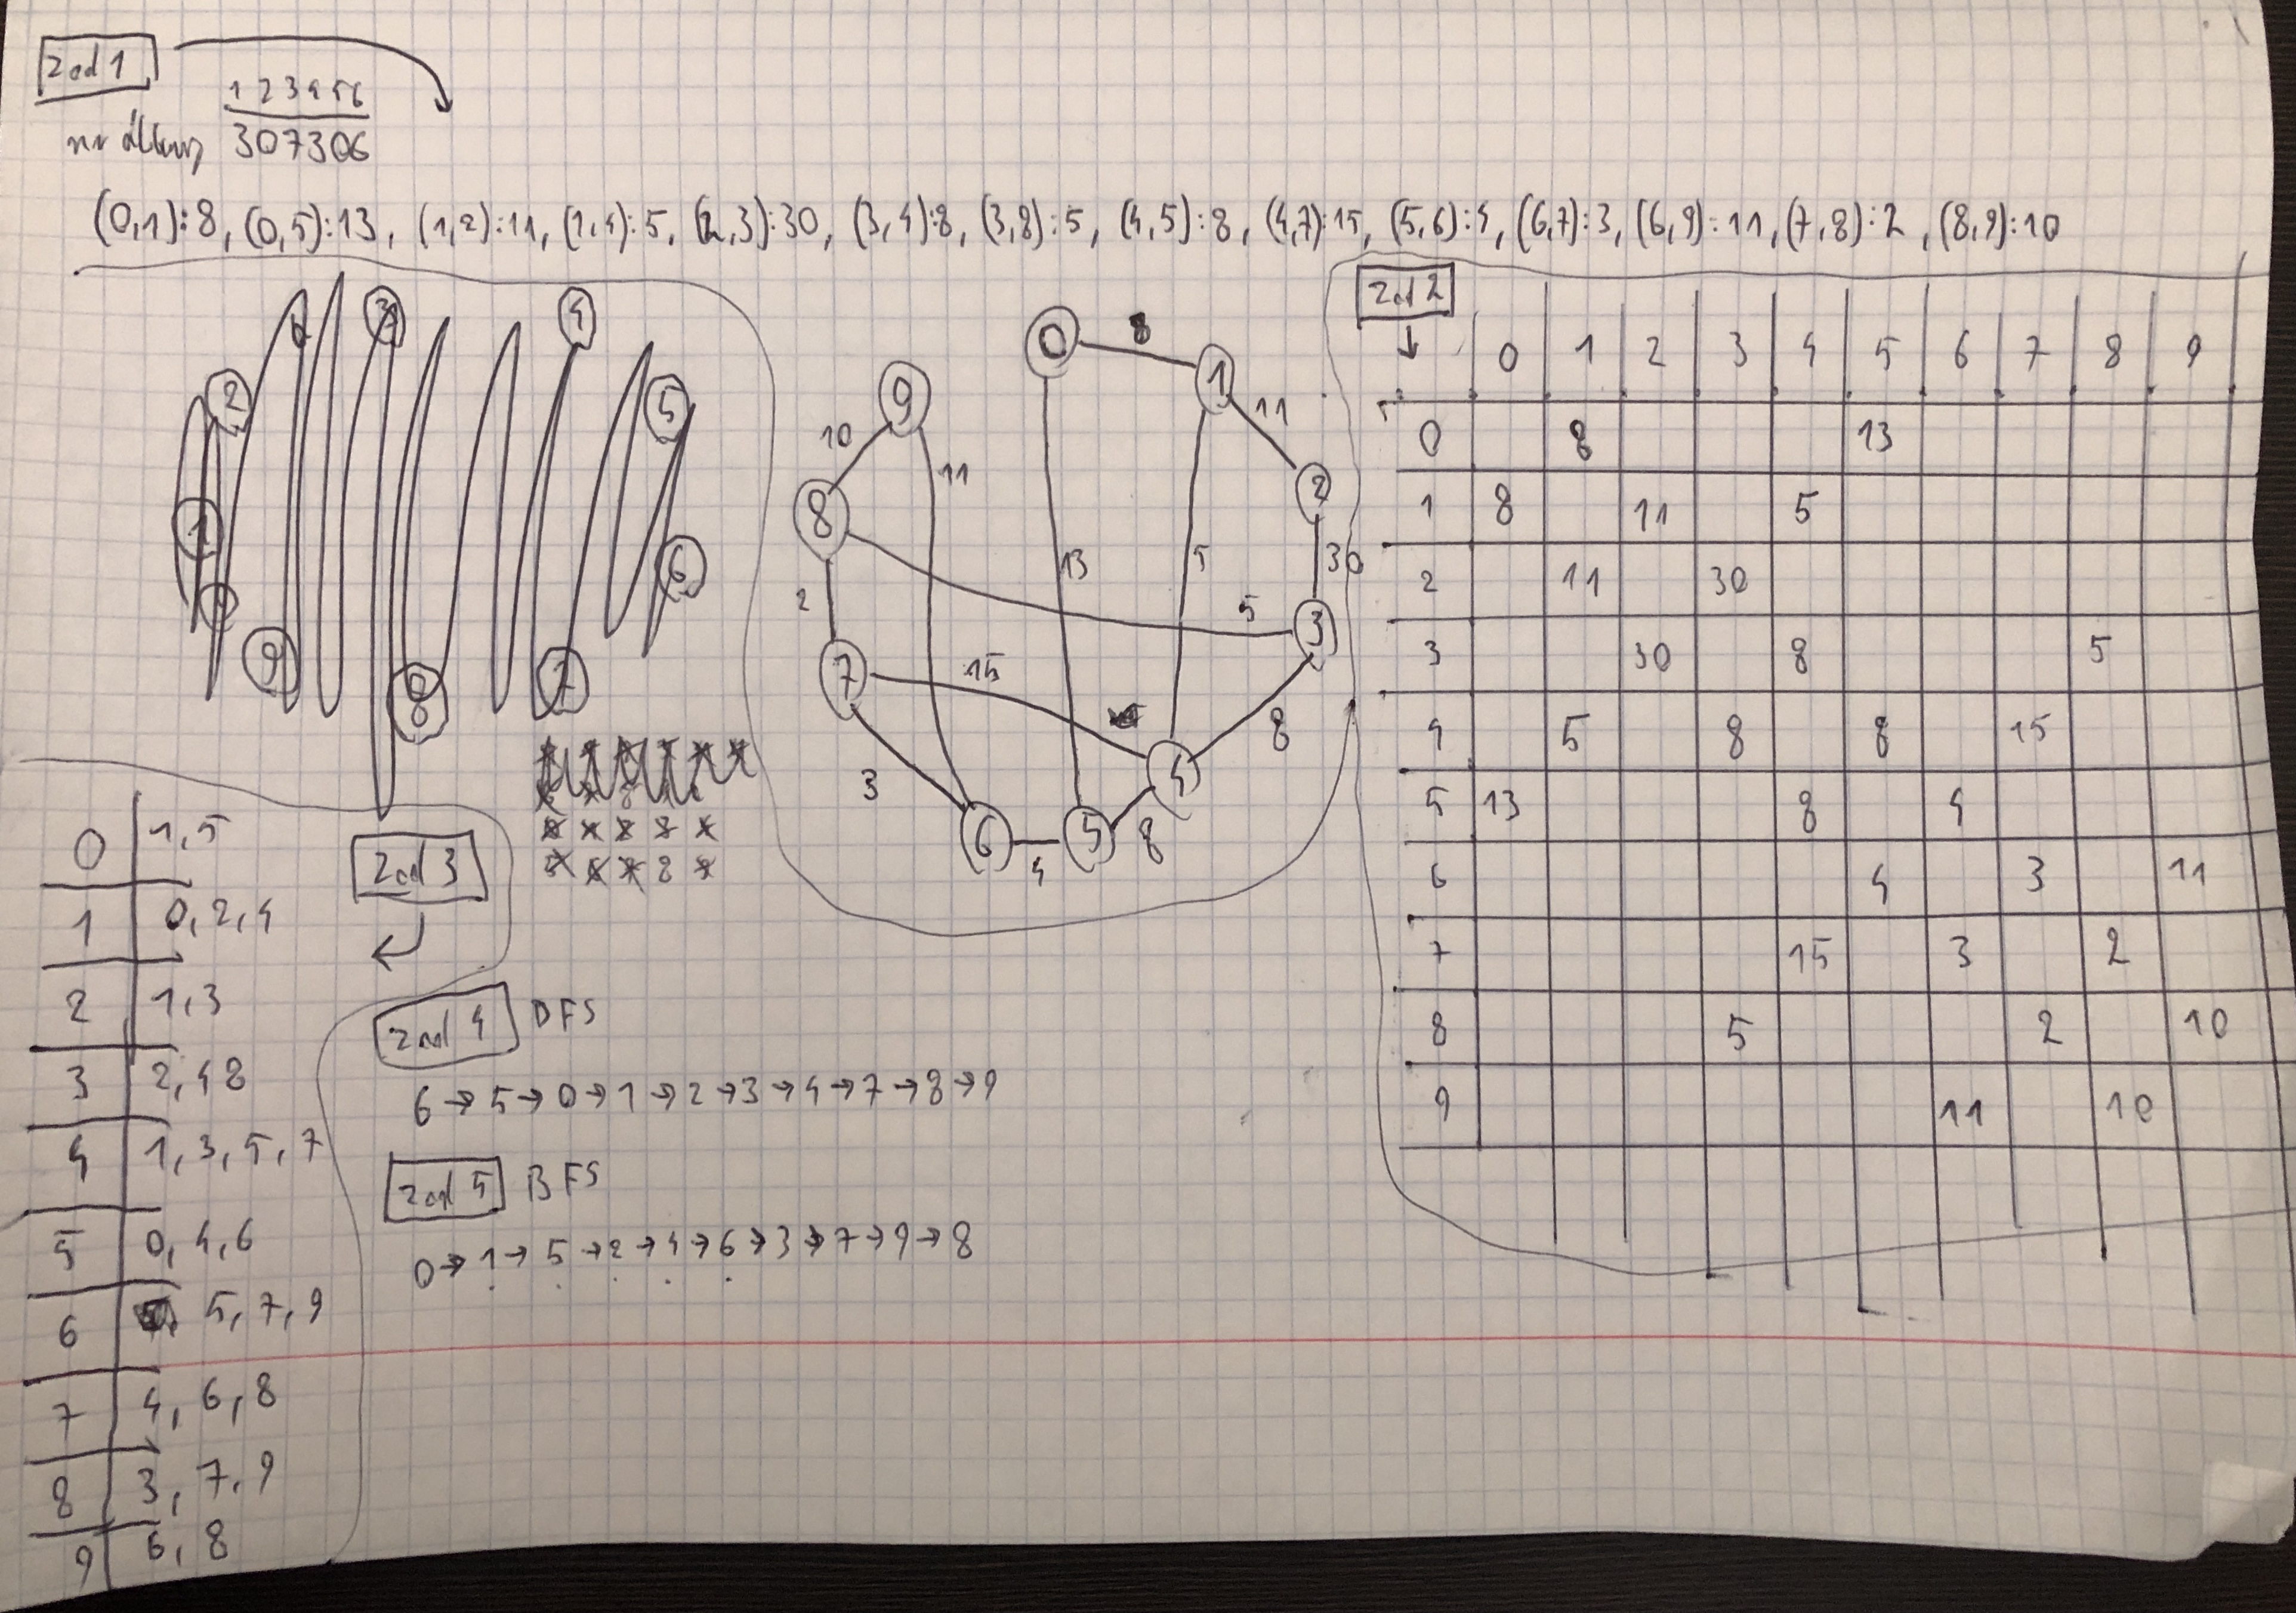 Zad 1
123456
nr albumu 307306
(0,1):8, (0,5):13, (1,2):11, (1,4):5, (2,3):30, (3,4):8, (3,8):5, (4,5):8, (4,7):15, (5,6):4, (6,7):3, (6,9):11, (7,8):2, (8,9):10
2 3 4 5
1 6
9 8 7
0 8 1
9 11
10 11
8 2
13 5 30
2 5 3
7 15
8
3 4
6 4 5 8
Zad 2
0 1 2 3 4 5 6 7 8 9
0 8 13
1 8 11 5
2 11 30
3 30 8 5
4 5 8 8 15
5 13 8 4
6 4 3 11
7 15 3 2
8 5 2 10
9 11 10
Zad 3
0 1,5
1 0,2,4
2 1,3
3 2,4 8
4 1,3,5,7
5 0,4,6
6 5,7,9
7 4,6,8
8 3,7,9
9 6,8
Zad 4 DFS
6→5→0→1→2→3→4→7→8→9
Zad 5 BFS
0→1→5→2→4→6→3→7→9→8